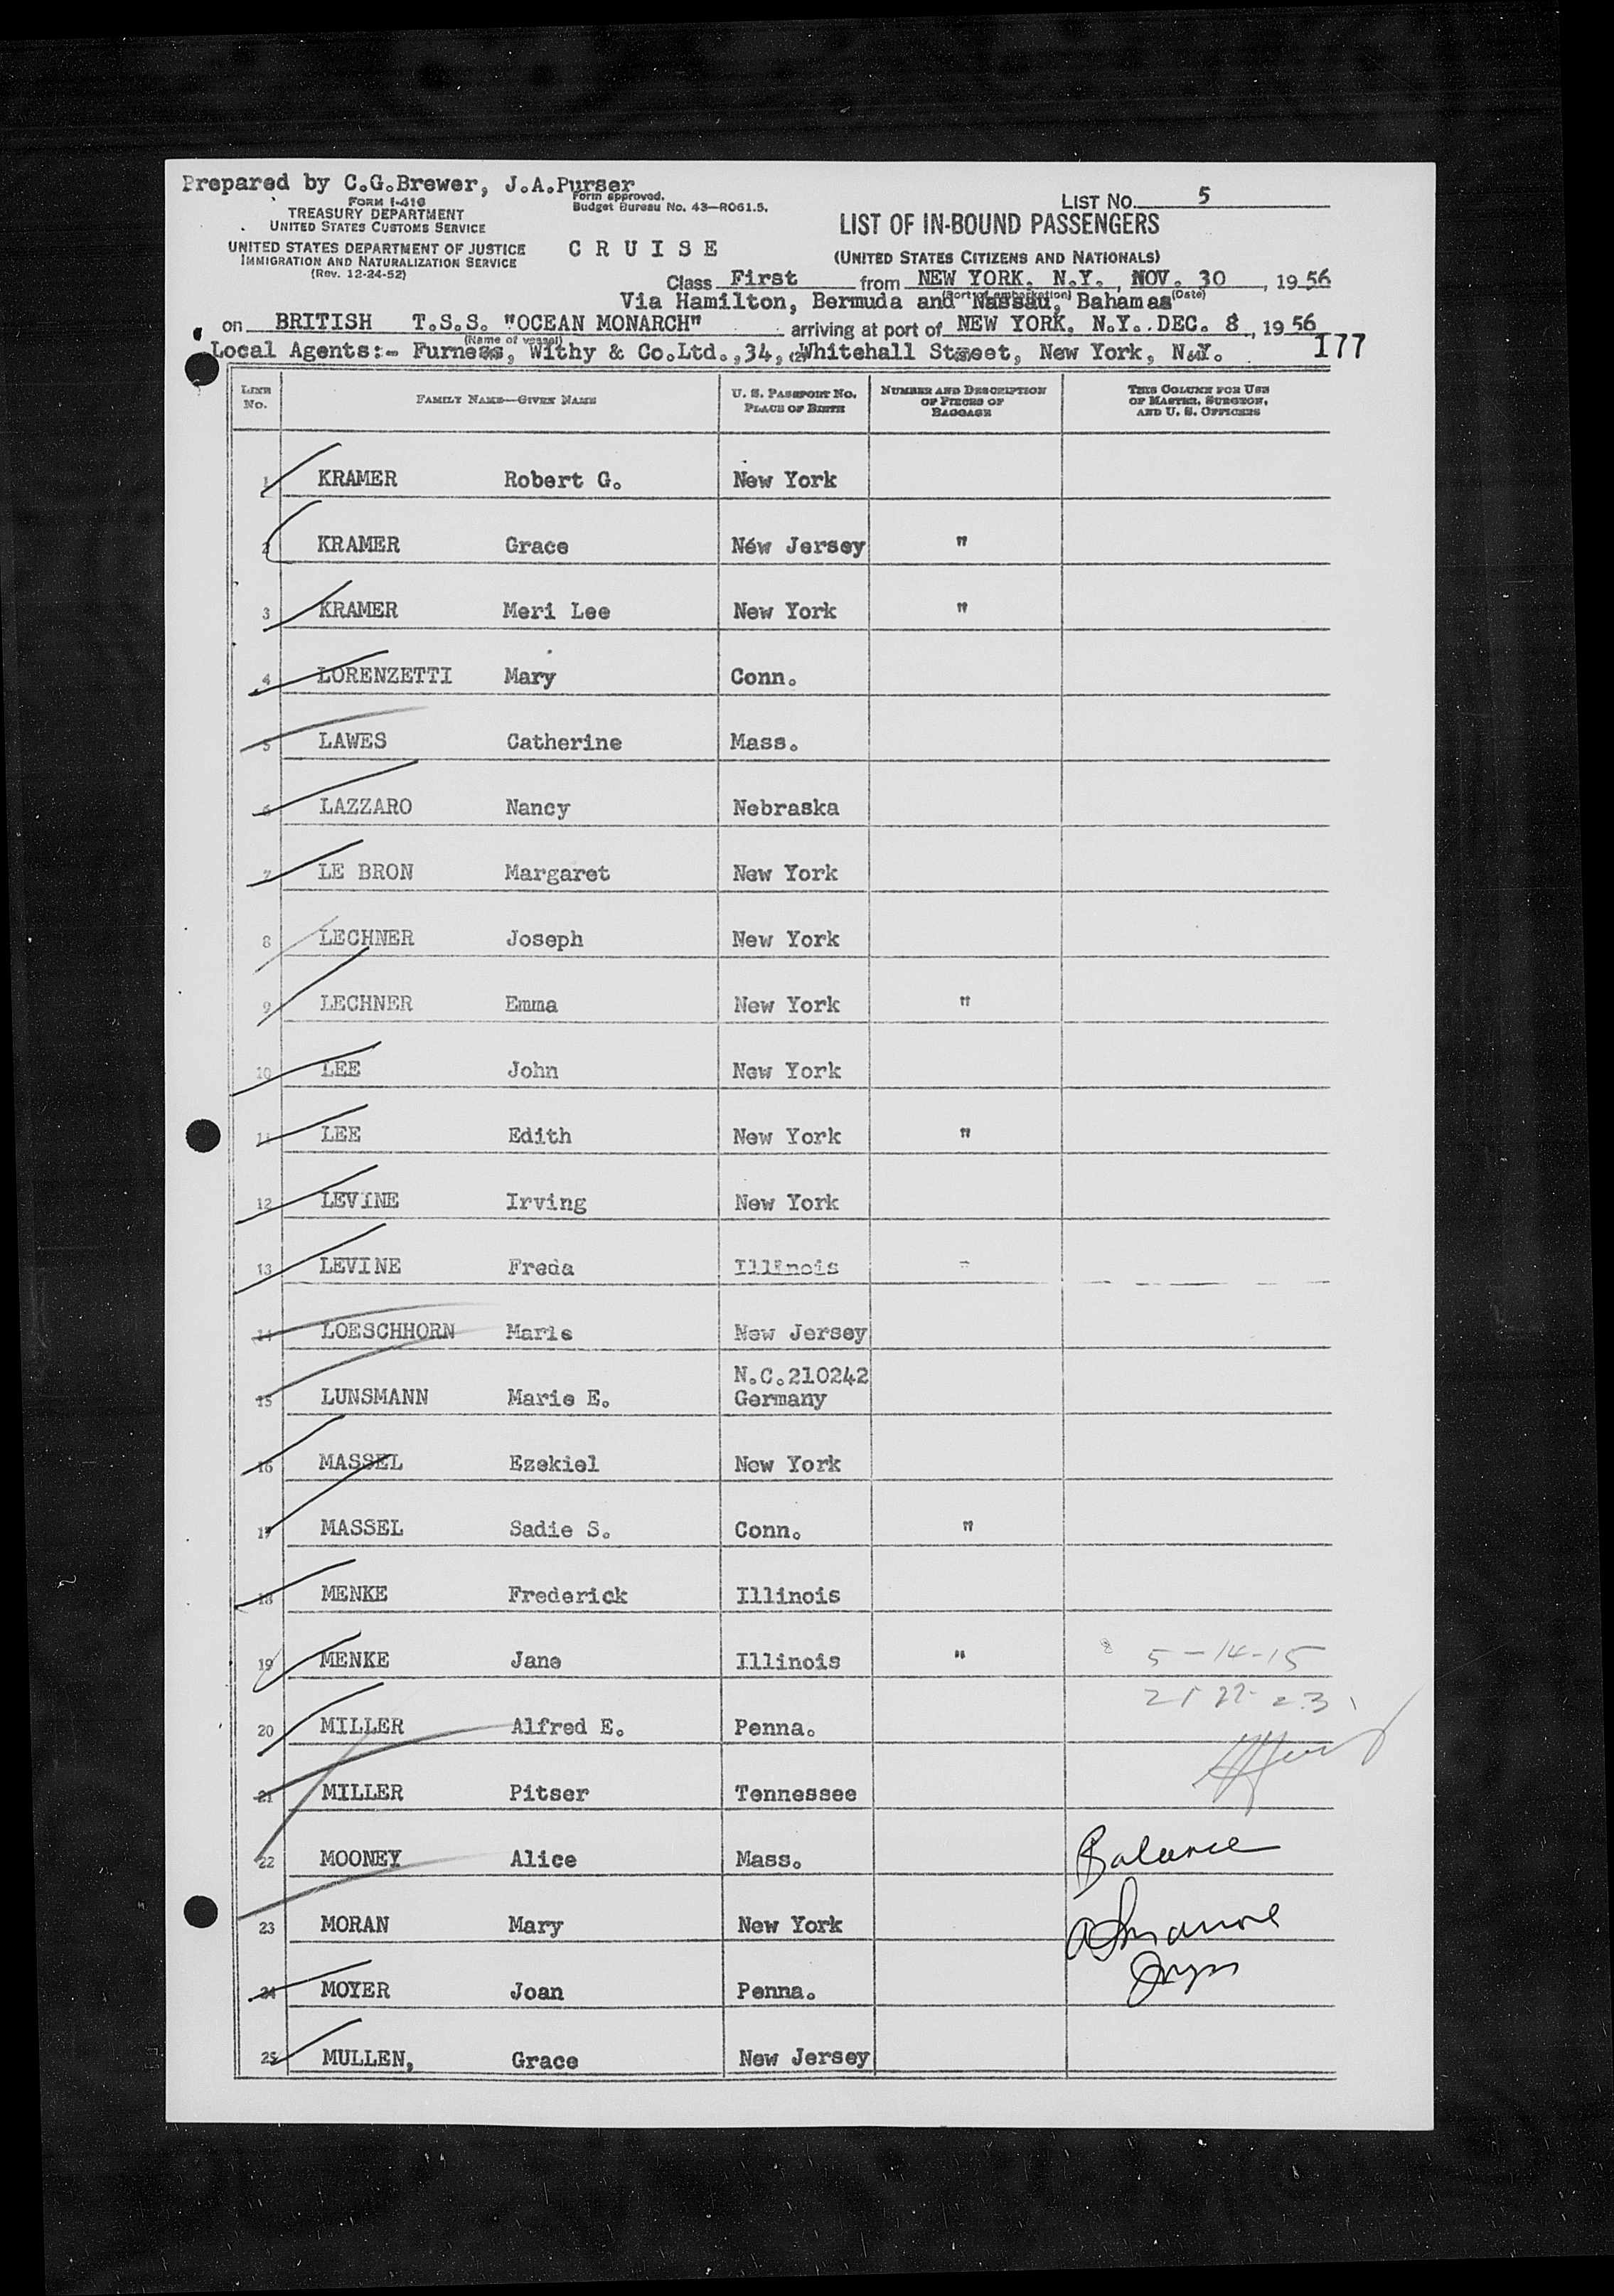 Prepared by C.G.Brewer, J.A.Purser
FORM I-418
TREASURY DEPARTMENT
UNITED STATES CUSTOMS SERVICE
UNITED STATES DEPARTMENT OF JUSTICE
IMMIGRATION AND NATURALIZATION SERVICE
(Rev. 12-24-52)
Form approved.
Budget Bureau No. 43—R061.5.
CRUISE
LIST No. 5
LIST OF IN-BOUND PASSENGERS
(UNITED STATES CITIZENS AND NATIONALS)
Class First from NEW YORK, N.Y., NOV. 30, 1956
(Port of embarkation) (Date)
Via Hamilton, Bermuda and Nassau, Bahamas
on BRITISH T.S.S. "OCEAN MONARCH" arriving at port of NEW YORK, N.Y. DEC. 8, 1956
(Name of vessel)
Local Agents:- Furness, Withy & Co.Ltd.,34, Whitehall Street, New York, N.Y. 177
LINE No. FAMILY NAME—GIVEN NAME U. S. PASSPORT NO. PLACE OF BIRTH NUMBER AND DESCRIPTION OF PIECES OF BAGGAGE THIS COLUMN FOR USE OF MASTER, SURGEON, AND U. S. OFFICERS
1 KRAMER Robert G. New York
2 KRAMER Grace New Jersey "
3 KRAMER Meri Lee New York "
4 LORENZETTI Mary Conn.
5 LAWES Catherine Mass.
6 LAZZARO Nancy Nebraska
7 LE BRON Margaret New York
8 LECHNER Joseph New York
9 LECHNER Emma New York "
10 LEE John New York
11 LEE Edith New York "
12 LEVINE Irving New York
13 LEVINE Freda Illinois "
14 LOESCHHORN Marie New Jersey
15 LUNSMANN Marie E. N.C.210242 Germany
16 MASSEL Ezekiel New York
17 MASSEL Sadie S. Conn. "
18 MENKE Frederick Illinois
19 MENKE Jane Illinois " 5-14-15
21 22-23
20 MILLER Alfred E. Penna.
21 MILLER Pitser Tennessee
22 MOONEY Alice Mass. Balance
23 MORAN Mary New York
24 MOYER Joan Penna.
25 MULLEN, Grace New Jersey